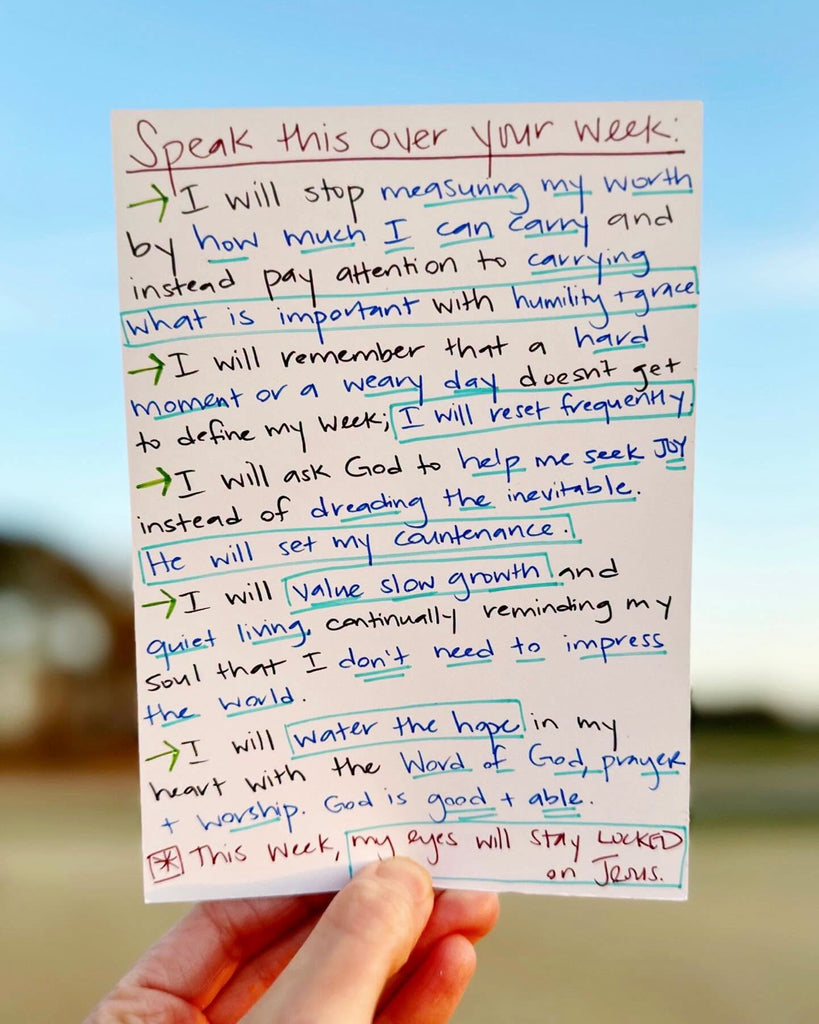 Speak this over your week:
→ I will stop measuring my worth
by how much I can carry and
instead pay attention to carrying
what is important with humility + grace
→ I will remember that a hard
moment or a weary day doesn't get
to define my week; I will reset frequently.
→ I will ask God to help me seek JOY
instead of dreading the inevitable.
He will set my countenance.
→ I will value slow growth and
quiet living, continually reminding my
soul that I don't need to impress
the world.
→ I will water the hope in my
heart with the Word of God, prayer
+ worship. God is good + able.
* This week, my eyes will stay LOCKED
on Jesus.